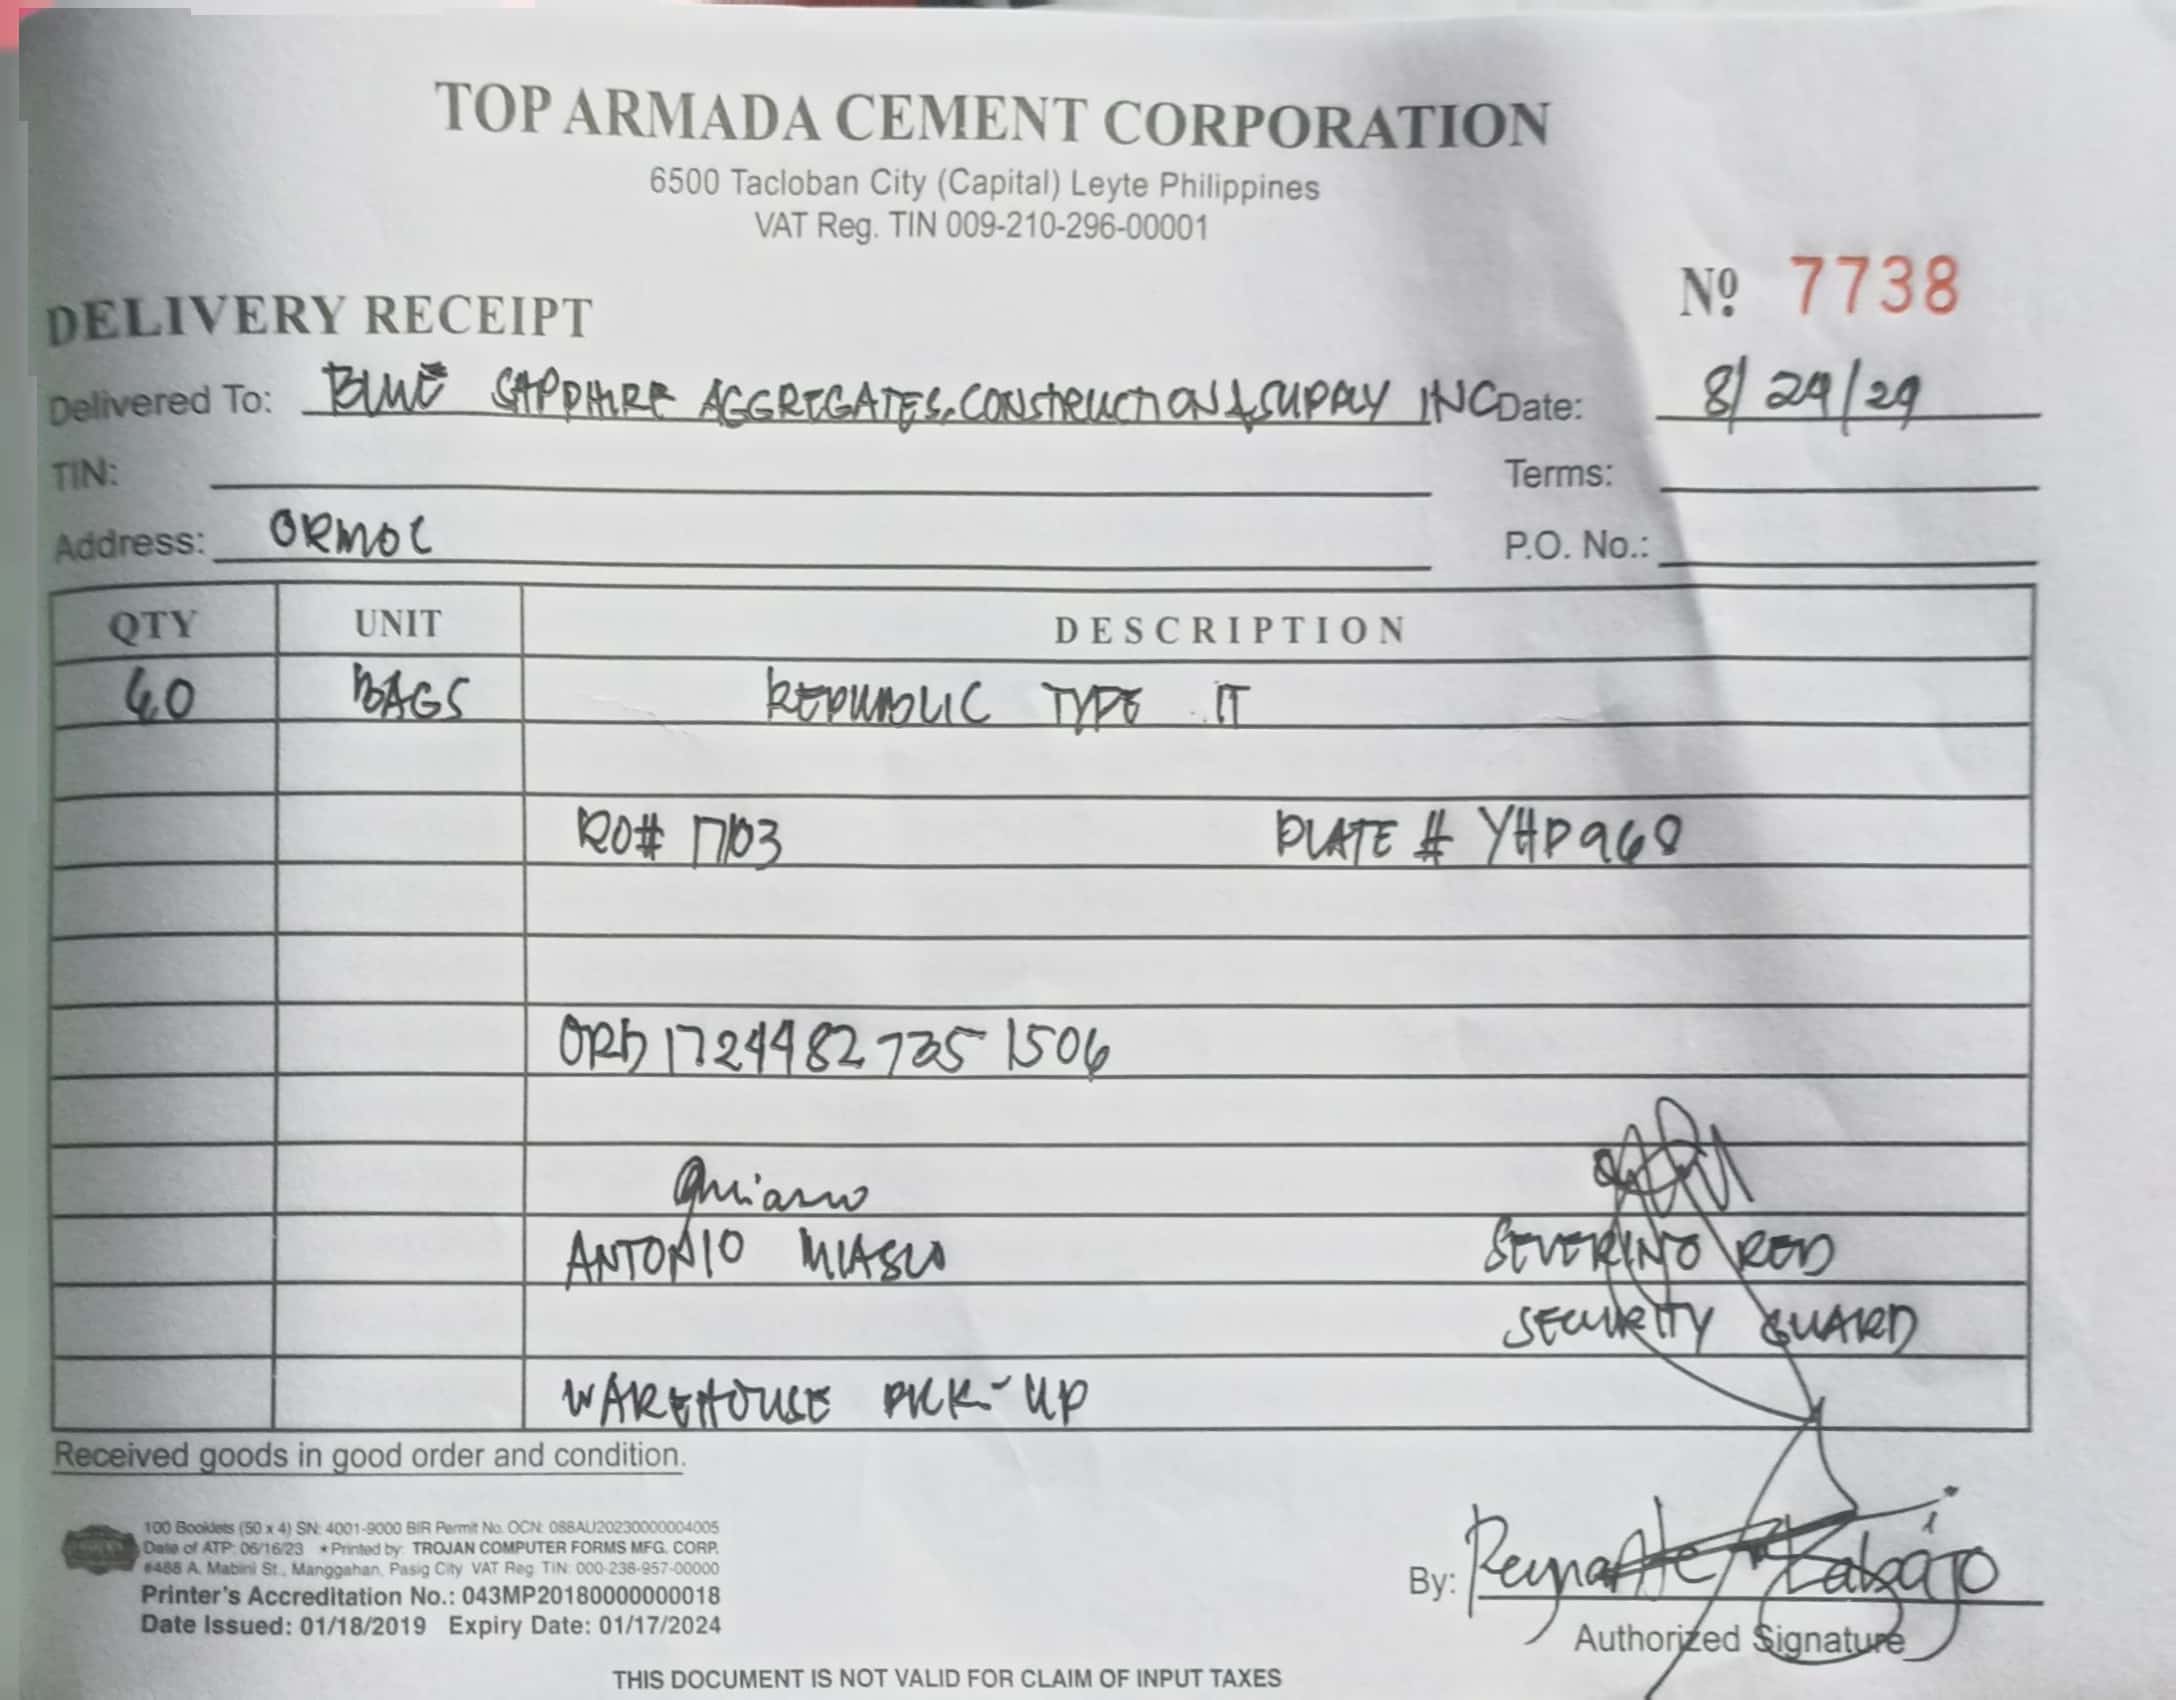 TOP ARMADA CEMENT CORPORATION
6500 Tacloban City (Capital) Leyte Philippines
VAT Reg. TIN 009-210-296-00001
Nº 7738
DELIVERY RECEIPT
Delivered To: BLUE SAPPHIRE AGGREGATES, CONSTRUCTION & SUPPLY INC Date: 8/24/24
TIN: Terms:
Address: ORMOC P.O. No.:
QTY UNIT DESCRIPTION
60 BAGS REPUBLIC TYPE IT
RO# 17103 PLATE # YHP968
ORD 1724482735 1506
ANTONIO MIASCO SEVERINO RED
SECURITY GUARD
WAREHOUSE PICK-UP
Received goods in good order and condition.
100 Booklets (50 x 4) SN: 4001-9000 BIR Permit No. OCN: 088AU20230000004005
Date of ATP: 06/16/23 * Printed by: TROJAN COMPUTER FORMS MFG. CORP.
#488 A. Mabini St., Manggahan, Pasig City VAT Reg. TIN: 000-238-957-00000
Printer's Accreditation No.: 043MP20180000000018
Date Issued: 01/18/2019 Expiry Date: 01/17/2024
By: Reynante Labajo
Authorized Signature
THIS DOCUMENT IS NOT VALID FOR CLAIM OF INPUT TAXES